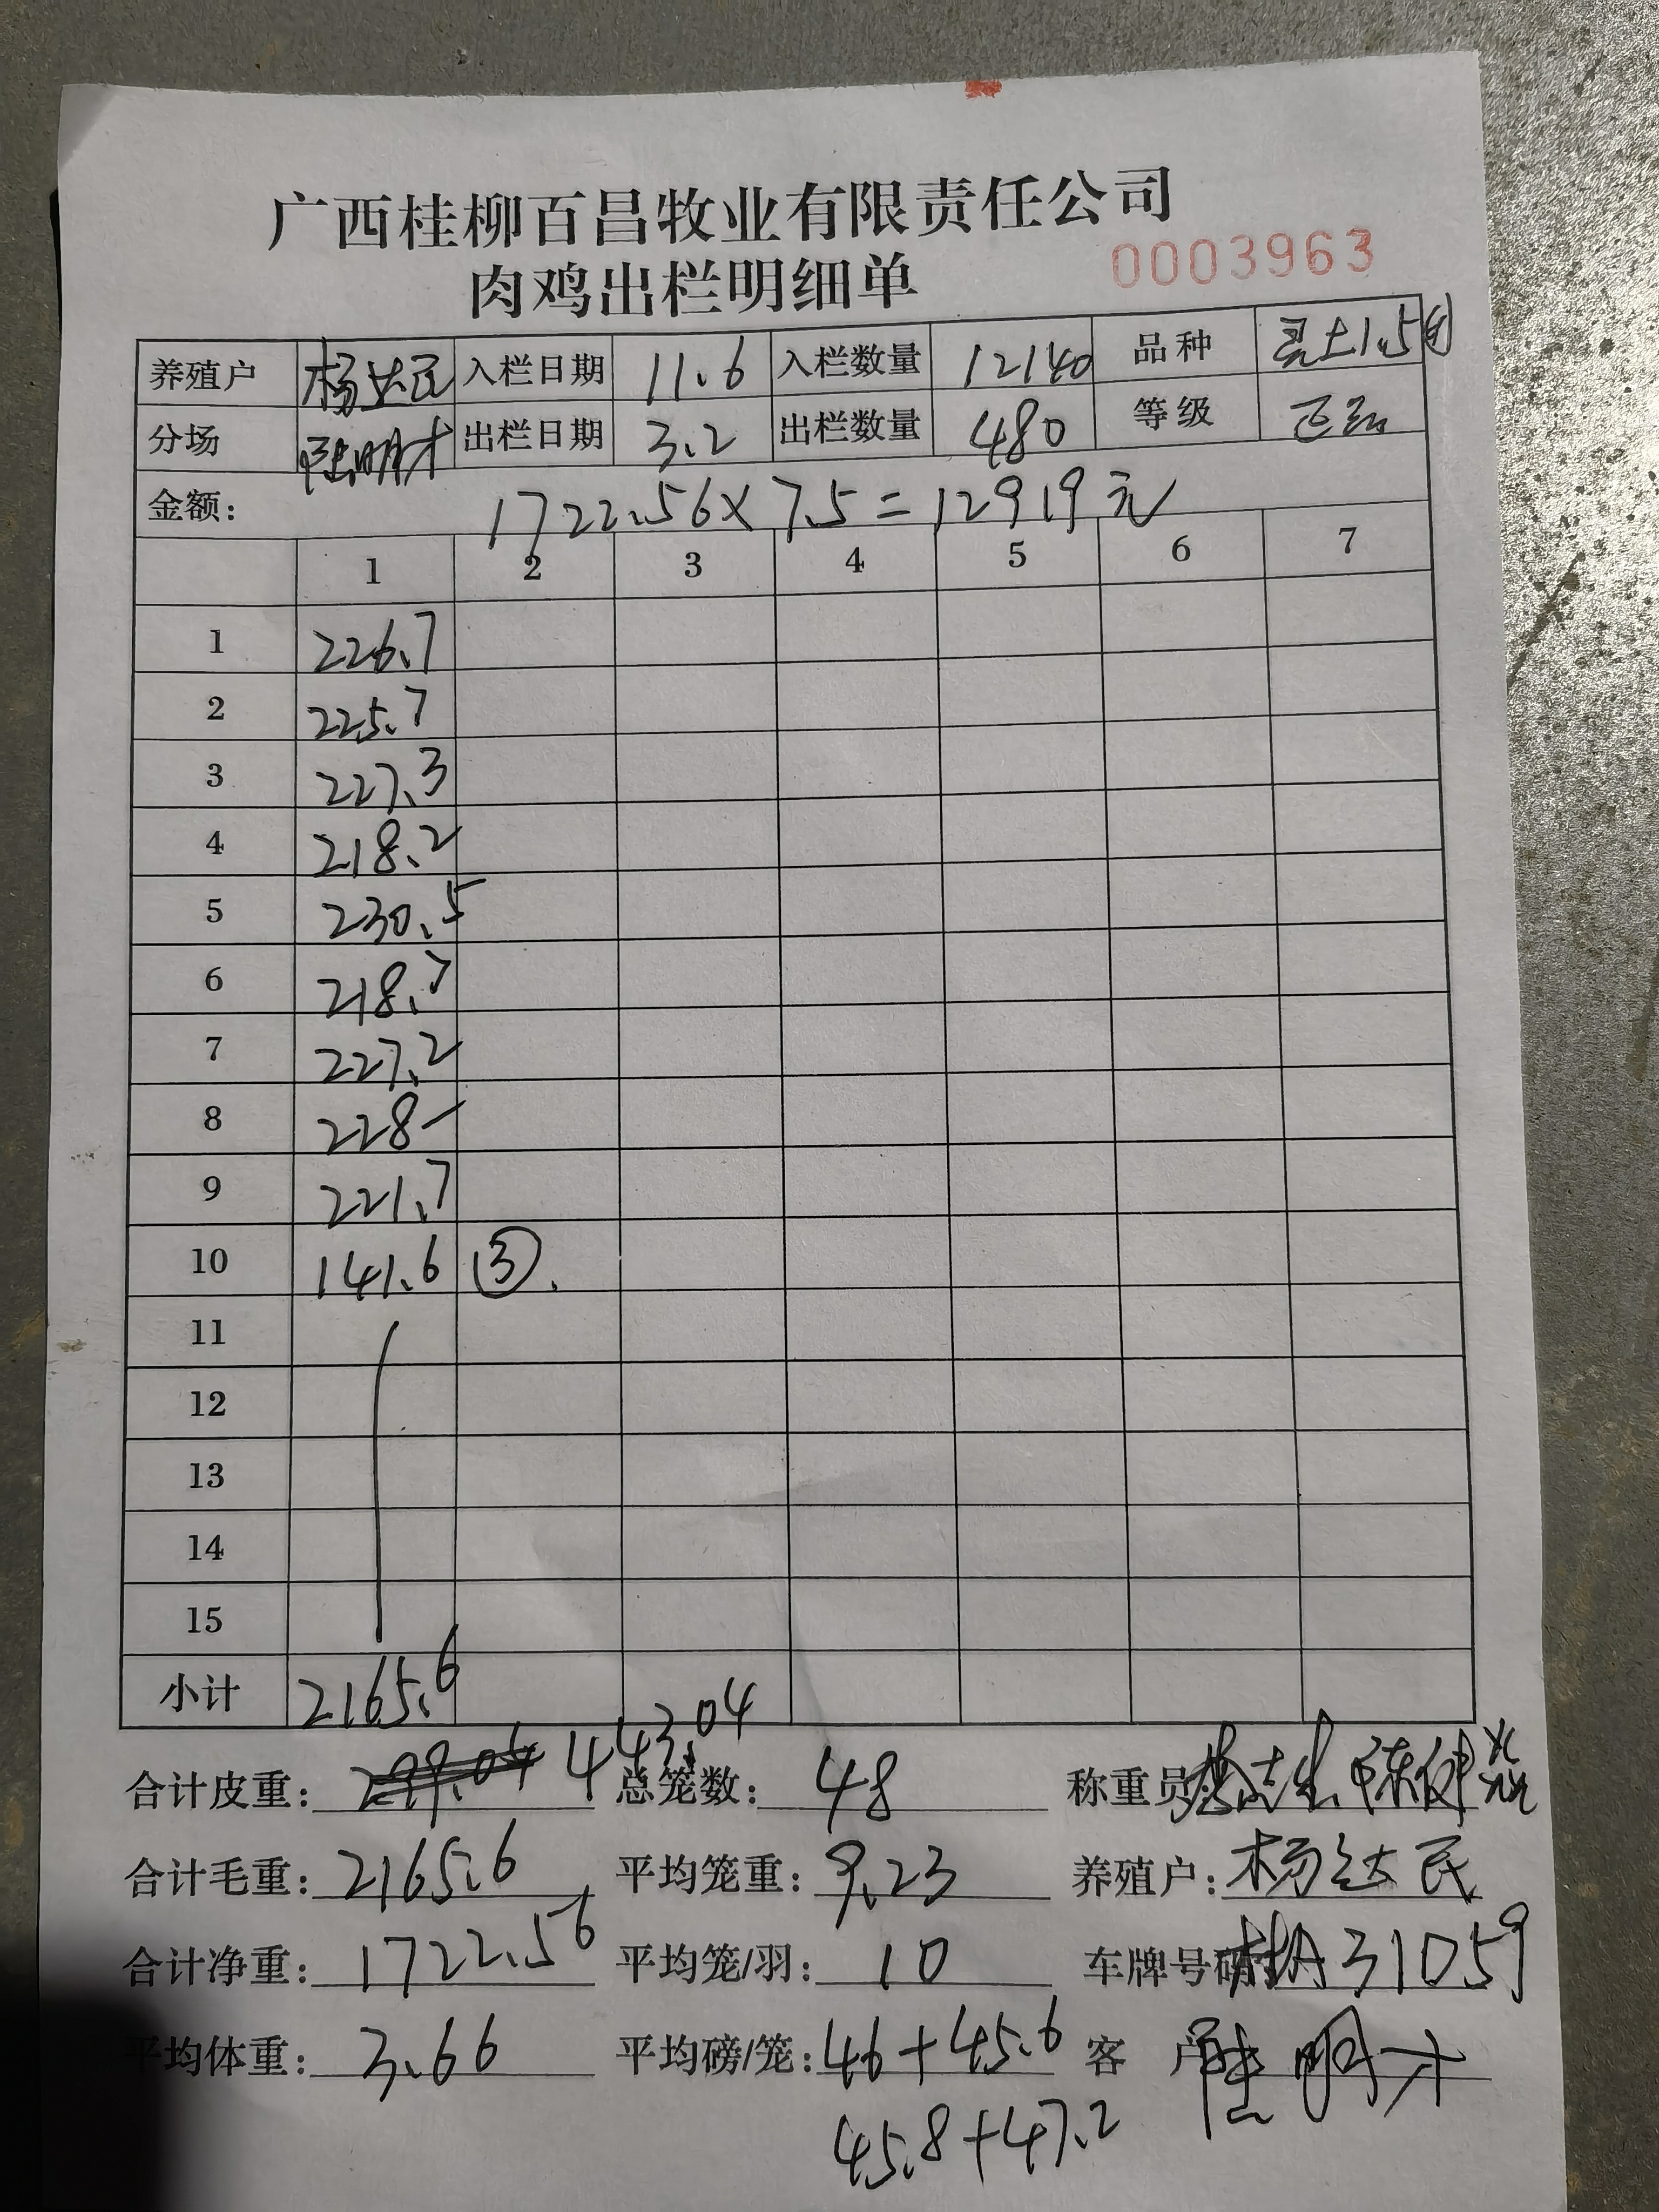 广西桂柳百昌牧业有限责任公司
肉鸡出栏明细单
0003963
养殖户 杨达民 入栏日期 11.6 入栏数量 12140 品种 土1.5
分场 陆明才 出栏日期 3.2 出栏数量 480 等级
金额: 1722.56×7.5=12919元
1 2 3 4 5 6 7
1 226.7
2 225.7
3 227.3
4 218.2
5 230.5
6 218.7
7 227.2
8 228-
9 221.7
10 141.6 ③.
11
12
13
14
15
小计 2165.6
合计皮重: 443.04 总笼数: 48 称重员:
合计毛重: 2165.6 平均笼重: 9.23 养殖户: 杨达民
合计净重: 1722.56 平均笼/羽: 10 车牌号码 桂A31059
平均体重: 3.66 平均磅/笼: 46+45.6 客户 陆明才
45.8+47.2